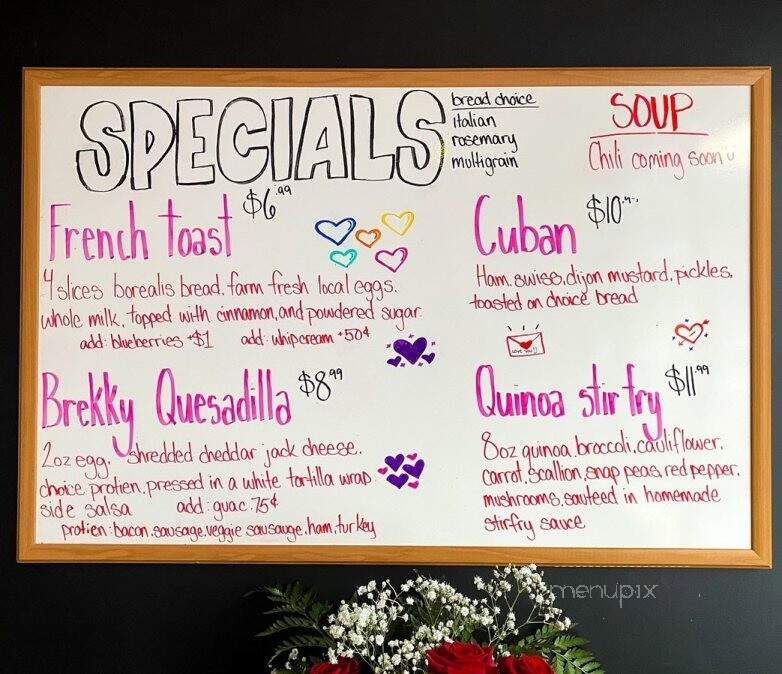 SPECIALS
bread choice
italian
rosemary
multigrain
SOUP
Chili coming soon
French toast $6.99
4 slices borealis bread, farm fresh local eggs,
whole milk, topped with cinnamon, and powdered sugar
add: blueberries +$1 add: whipcream +50¢
Brekky Quesadilla $8.99
2oz egg, shredded cheddar jack cheese,
choice protien, pressed in a white tortilla wrap
side salsa add: guac .75¢
protien: bacon, sausage, veggie sausauge, ham, turkey
Cuban $10
Ham, swiss, dijon mustard, pickles,
toasted on choice bread
love you!!
Quinoa stir fry $11.99
8oz quinoa, broccoli, cauliflower,
carrot, scallion, snap peas, red pepper,
mushrooms, sauteed in homemade
stirfry sauce
menupix